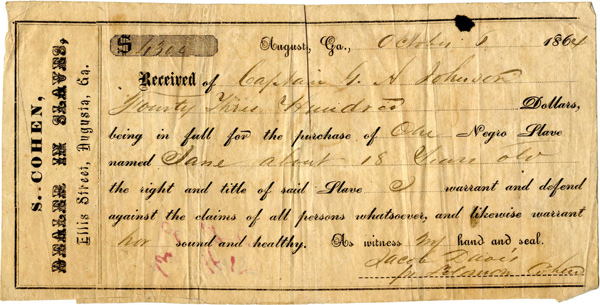 S. COHEN,
DEALER IN SLAVES,
Ellis Street, Augusta, Ga.
$ 4300
August, Ga., October 1864
Received of Captain G. A Johnson
Fourty Three Hundred Dollars,
being in full for the purchase of One Negro Slave
named Jane about 18 Years old
the right and title of said Slave I warrant and defend
against the claims of all persons whatsoever, and likewise warrant
her sound and healthy. As witness my hand and seal.
Jacob Davis
for Solomon Cohen